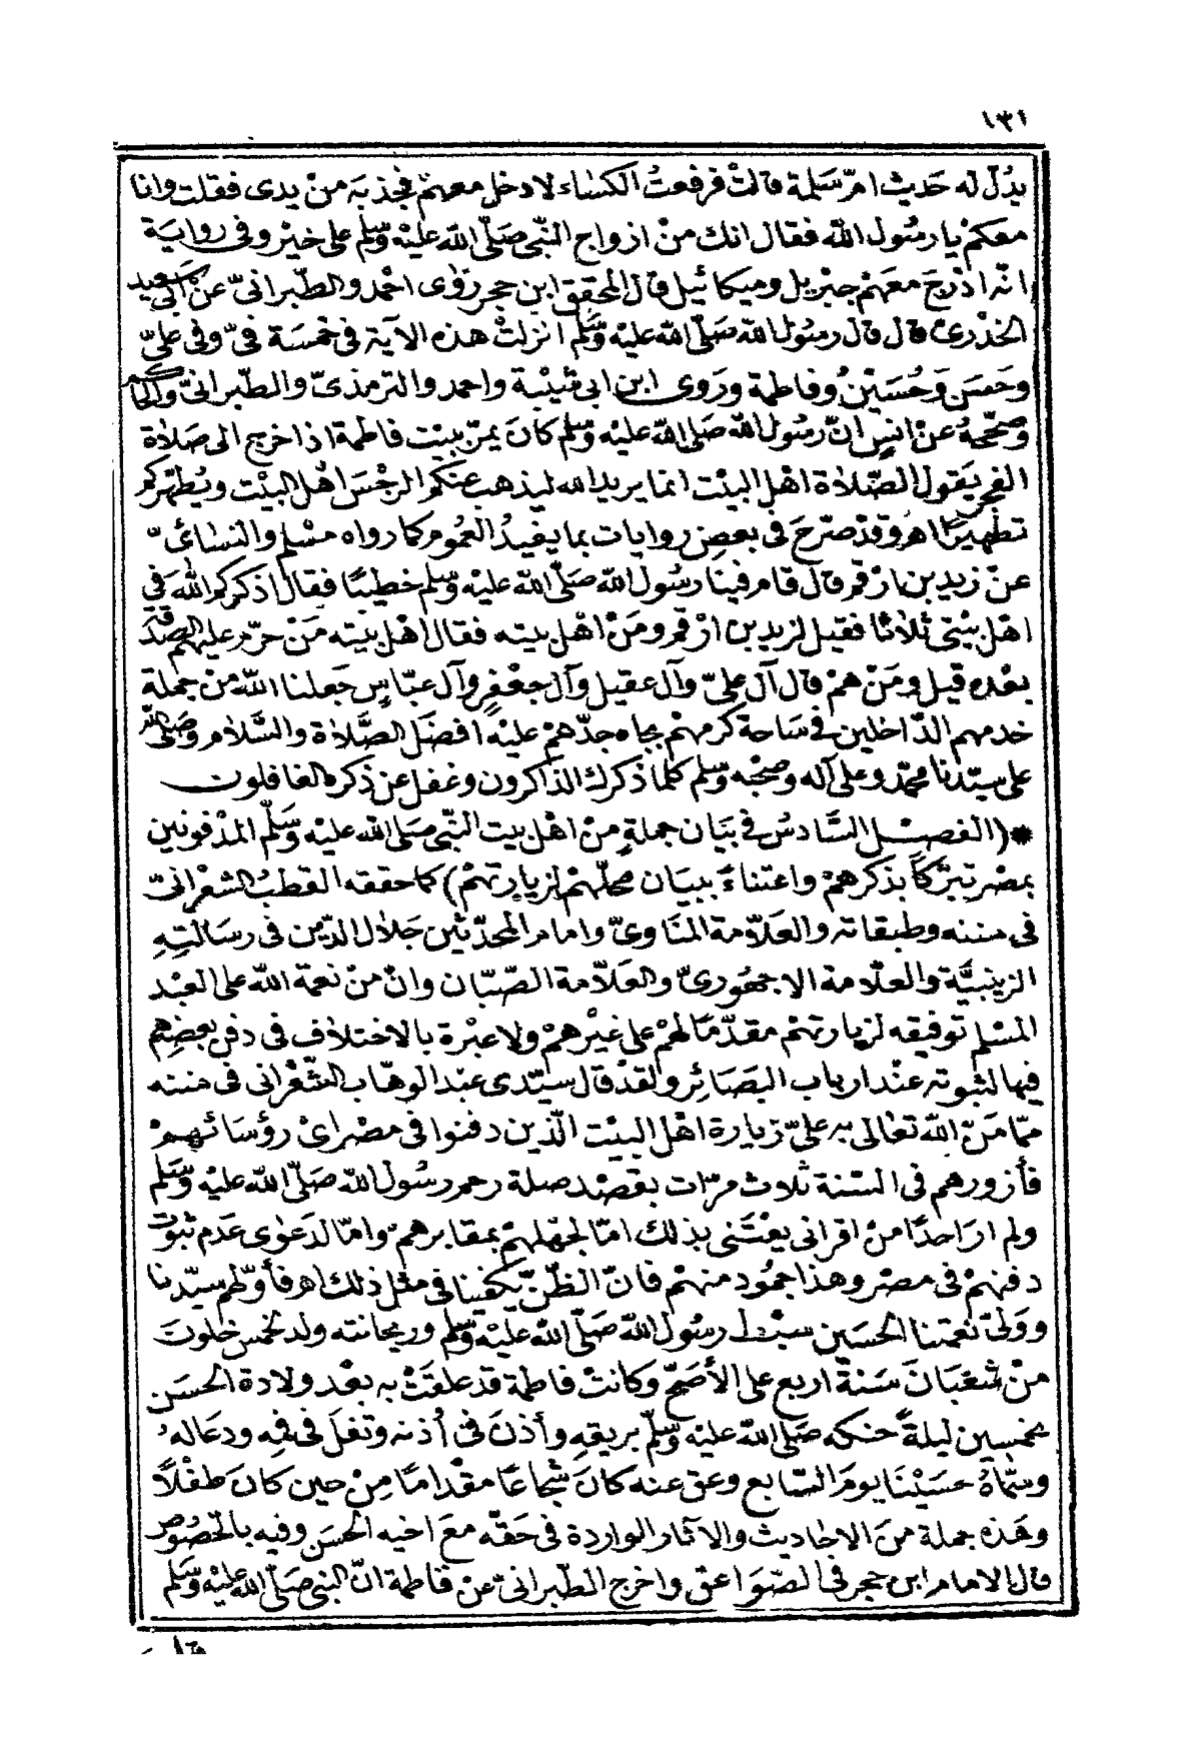 ١٣١
يدل له حديث ام سلمة قالت فرفعت الكساء لادخل معهم فجذبه من يدى فقلت وانا
معكم يا رسول الله فقال انك من ازواج النبى صلى الله عليه وسلم على خير وفى رواية
انه اذرج معهم جبريل وميكائيل قال المحقق ابن حجر روى احمد والطبرانى عن ابى سعيد
الخدرى قال قال رسول الله صلى الله عليه وسلم انزلت هذه الآية فى خمسة فىّ وفى علىّ
وحسن وحسين وفاطمة وروى ابن ابى شيبة واحمد والترمذى والطبرانى والحاكم
وصححه عن انس انّ رسول الله صلى الله عليه وسلم كان يمر ببيت فاطمة اذا خرج الى صلاة
الفجر يقول الصلاة اهل البيت انما يريد الله ليذهب عنكم الرجس اهل البيت ويطهركم
تطهيرا اهـ وقد صرح فى بعض روايات بما يفيد العموم كما رواه مسلم والنسائى
عن زيد بن ارقم قال قام فينا رسول الله صلى الله عليه وسلم خطيبا فقال اذكركم الله فى
اهل بيتى ثلاثا فقيل لزيد بن ارقم ومن اهل بيته فقال اهل بيته من حرم عليهم الصدقة
بعده قيل ومن هم قال آل علىّ وآل عقيل وآل جعفر وآل عباس جعلنا الله من جملة
خدمهم الداخلين فى ساحة كرمهم بجاه جدهم عليه افضل الصلاة والسلام وصلى الله
على سيدنا محمد وعلى آله وصحبه وسلم كلما ذكرك الذاكرون وغفل عن ذكره الغافلون
*(الفصل السادس فى بيان جملة من اهل بيت النبى صلى الله عليه وسلم المدفونين
بمصر تبركا بذكرهم واعتناء ببيان محلهم لزيارتهم) كما حققه القطب الشعرانى
فى مننه وطبقاته والعلامة المناوى وامام المحدثين جلال الدين فى رسالته
الزينبية والعلامة الاجهورى والعلامة الصبان وان من نعمة الله على العبد
المسلم توفيقه لزيارتهم مقدما لهم على غيرهم ولا عبرة بالاختلاف فى دفن بعضهم
فيها لثبوته عند ارباب البصائر ولقد قال سيدى عبد الوهاب الشعرانى فى مننه
مما منّ الله تعالى به علىّ زيارة اهل البيت الذين دفنوا فى مصر اى رؤسائهم
فأزورهم فى السنة ثلاث مرات بقصد صلة رحم رسول الله صلى الله عليه وسلم
ولم ار احدا من اقرانى يعتنى بذلك اما لجهلهم بمقابرهم واما لدعوى عدم ثبوت
دفنهم فى مصر وهذا جمود منهم فانّ الظن يكفينا فى مثل ذلك اهـ فأولهم سيدنا
وولى نعمتنا الحسين سبط رسول الله صلى الله عليه وسلم وريحانته ولد لخمس خلون
من شعبان سنة اربع على الأصح وكانت فاطمة قد علقت به بعد ولادة الحسن
بخمسين ليلة حنكه صلى الله عليه وسلم بريقه وأذن فى أذنه وتفل فى فيه ودعا له
وسماه حسينا يوم السابع وعق عنه كان شجاعا مقداما من حين كان طفلا
وهذه جملة من الاحاديث والآثار الواردة فى حقه مع اخيه الحسن وفيه بالخصوص
قال الامام ابن حجر فى الصواعق واخرج الطبرانى عن فاطمة انّ النبى صلى الله عليه وسلم